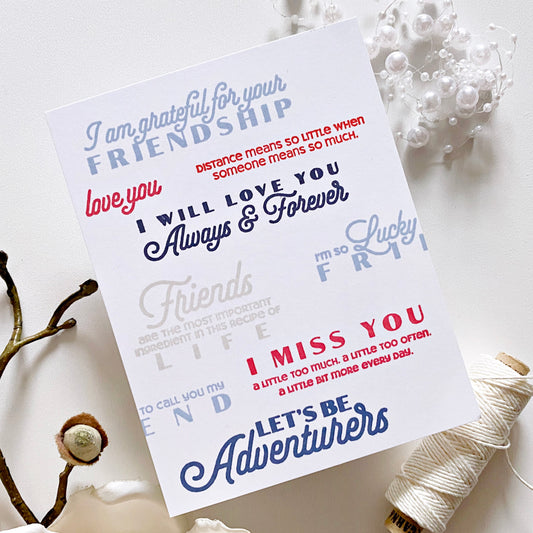 I am grateful for your
FRIENDSHIP
DISTANCE MEANS SO LITTLE WHEN
SOMEONE MEANS SO MUCH.
love you
I WILL LOVE YOU
Always & Forever
I'M SO Lucky
FRI
Friends
ARE THE MOST IMPORTANT
INGREDIENT IN THIS RECIPE OF
LIFE
I MISS YOU
A LITTLE TOO MUCH, A LITTLE TOO OFTEN,
A LITTLE BIT MORE EVERY DAY.
TO CALL YOU MY
END
LET'S BE
Adventurers